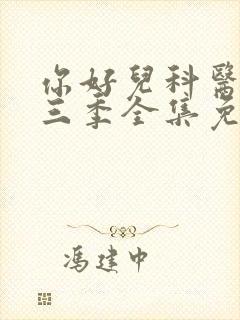 你好兒科醫
三季全集免
馮建中